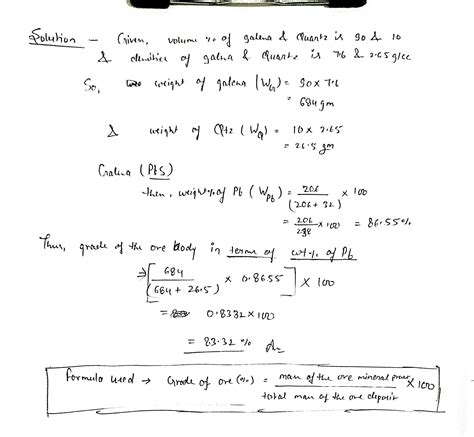 Solution - Given, volume % of galena & Quartz is 90 & 10
& densities of galena & Quartz is 7.6 & 2.65 g/cc
So, weight of galena (WG) = 90 x 7.6
= 684 gm
& weight of Qtz (WQ) = 10 x 2.65
= 26.5 gm
Galena (PbS)
then, weight % of Pb (WPb) = 206 / (206 + 32) x 100
= 206 / 238 x 100 = 86.55%
Thus, grade of the ore body in terms of wt% of Pb
⇒ [684 / (684 + 26.5) x 0.8655] x 100
= 0.8332 x 100
= 83.32 %
Formula used → Grade of ore (%) = mass of the ore mineral / total mass of the ore deposit x 100